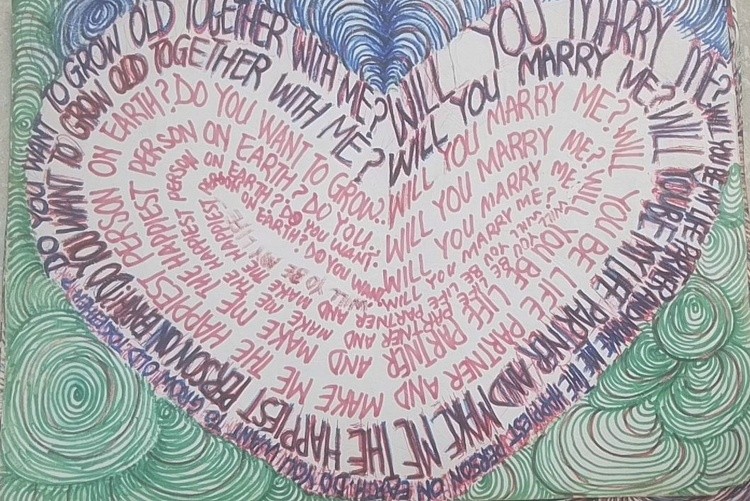 WILL YOU MARRY ME? WILL YOU BE MY LIFE PARTNER AND MAKE ME THE HAPPIEST PERSON ON EARTH? DO YOU WANT TO GROW OLD TOGETHER
DO YOU WANT TO GROW OLD TOGETHER WITH ME?
WILL YOU MARRY ME? WILL YOU BE MY LIFE PARTNER AND MAKE ME THE HAPPIEST PERSON ON EARTH? DO YOU WANT TO GROW OLD TOGETHER WITH ME?
WILL YOU MARRY ME? WILL YOU BE LIFE PARTNER AND MAKE ME THE HAPPIEST PERSON ON EARTH? DO YOU WANT TO GROW..
WILL YOU MARRY ME? WILL YOU BE LIFE PARTNER AND MAKE ME THE HAPPIEST PERSON ON EARTH? DO YOU..
WILL YOU MARRY ME? WILL YOU BE LIFE PARTNER AND MAKE ME THE HAPPIEST PERSON ON EARTH? DO YOU WANT.
WILL YOU MARRY ME? PERSON ON EARTH? DO YOU WANT